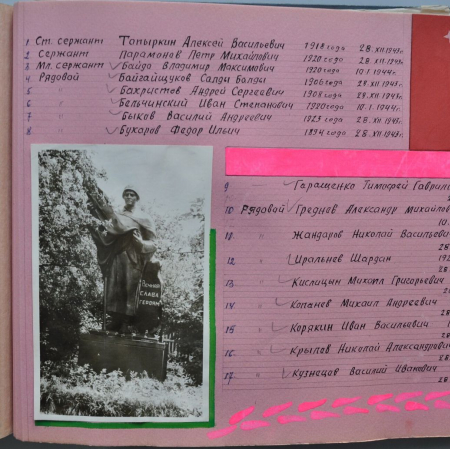 1 Ст. сержант Топыркин Алексей Васильевич 1918 года 28.XII.1943г.
2 Сержант Парамонов Петр Михайлович 1920 года 28.XII.1943г.
3 Мл. сержант Байда Владимир Максимович 1920 года 10.I.1944г.
4 Рядовой Байгайщуков Салди Болди 1906 года 28.XII.1943г.
5 " Бахристов Андрей Сергеевич 1908 года 28.XII.1943г.
6 " Бельчинский Иван Степанович 1920 года 10.I.1944г.
7 " Быков Василий Андреевич 1923 года 28.XII.1943г.
8 " Бухаров Федор Ильич 1894 года 28.XII.1943г.
СЛАВА
ГЕРОЯМ
9 " Таращенко Тимофей Гаврил
10 Рядовой Греднев Александр Михайлов
10.
Жандаров Николай Васильеви
28.
12 " Иральнев Шардан 192
28.
13 " Кислицын Михаил Григорьевич
14. " Копанев Михаил Андреевич
28.
15 " Корякин Иван Васильевич 1
28.
16. " Крылов Николай Александрович
28.
17. " Кузнецов Василий Иванович
28.